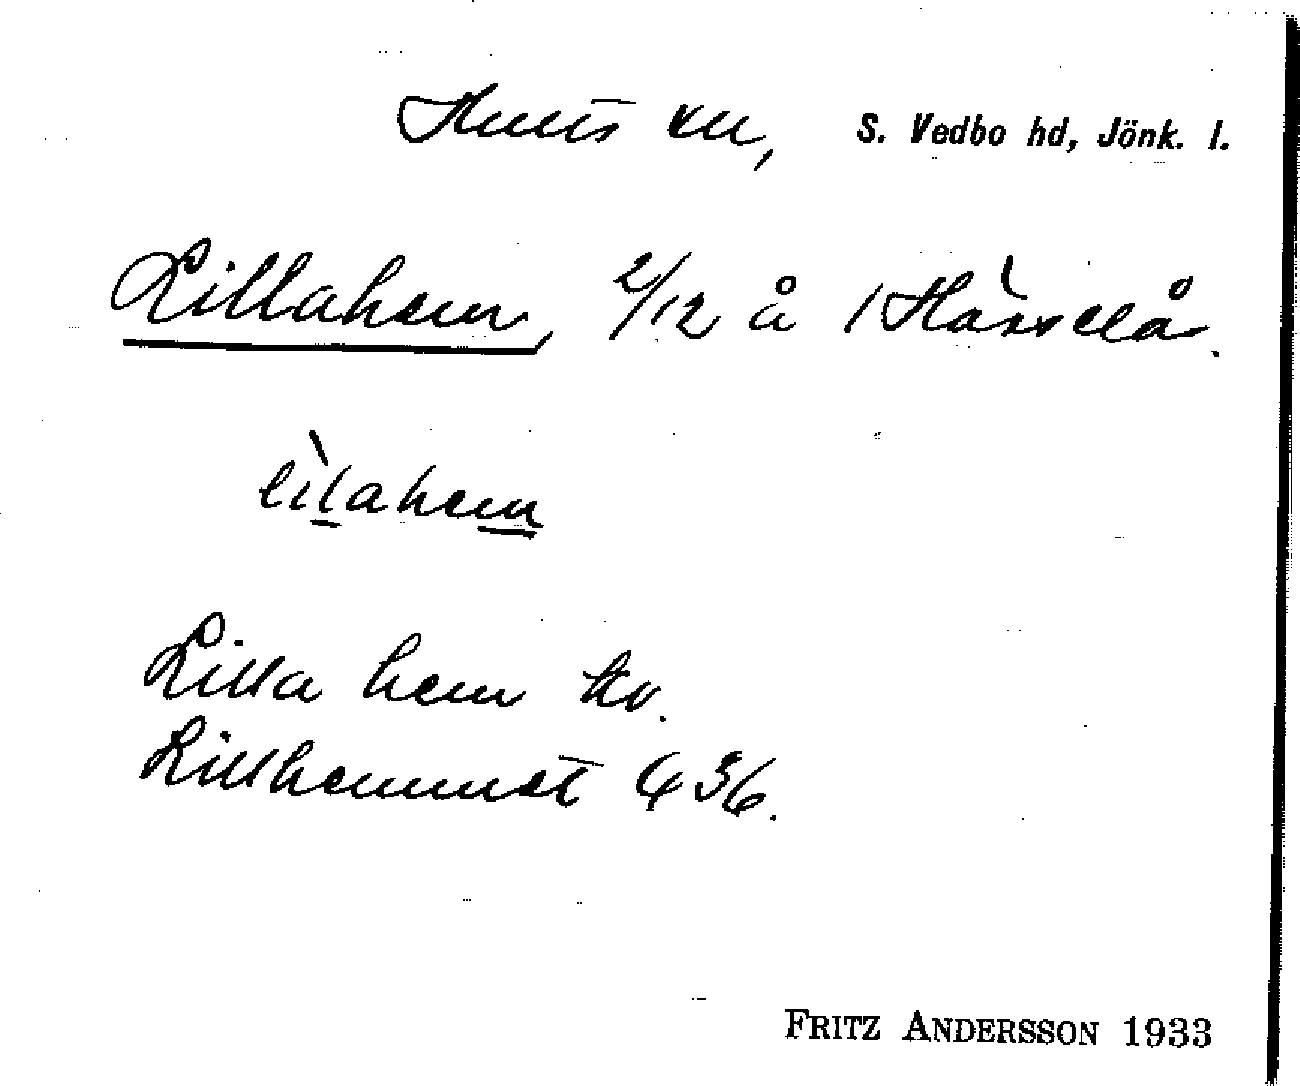 Hults sn, S. Vedbo hd, Jönk. l.
Lillahem, 2/12 å 1 Hässelå.
lìlahem
Lilla hem kv.
Lillhemmet G 36.
FRITZ ANDERSSON 1933